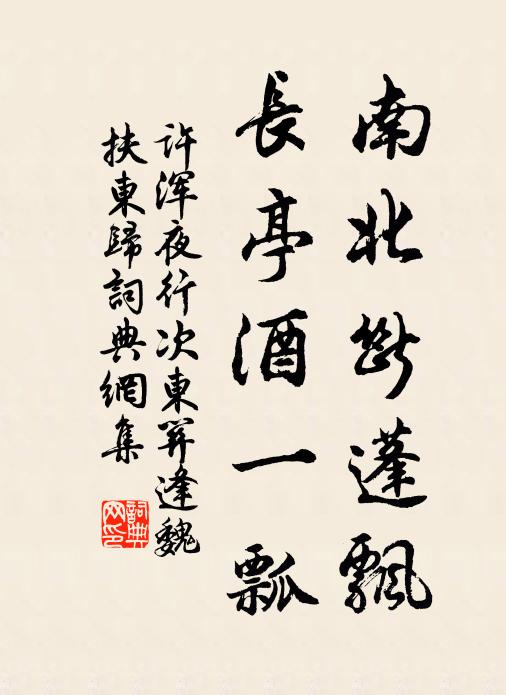 南北斷蓬飄
長亭酒一瓢
許渾夜行次東關逢魏
扶東歸詞典網集
詞典网印